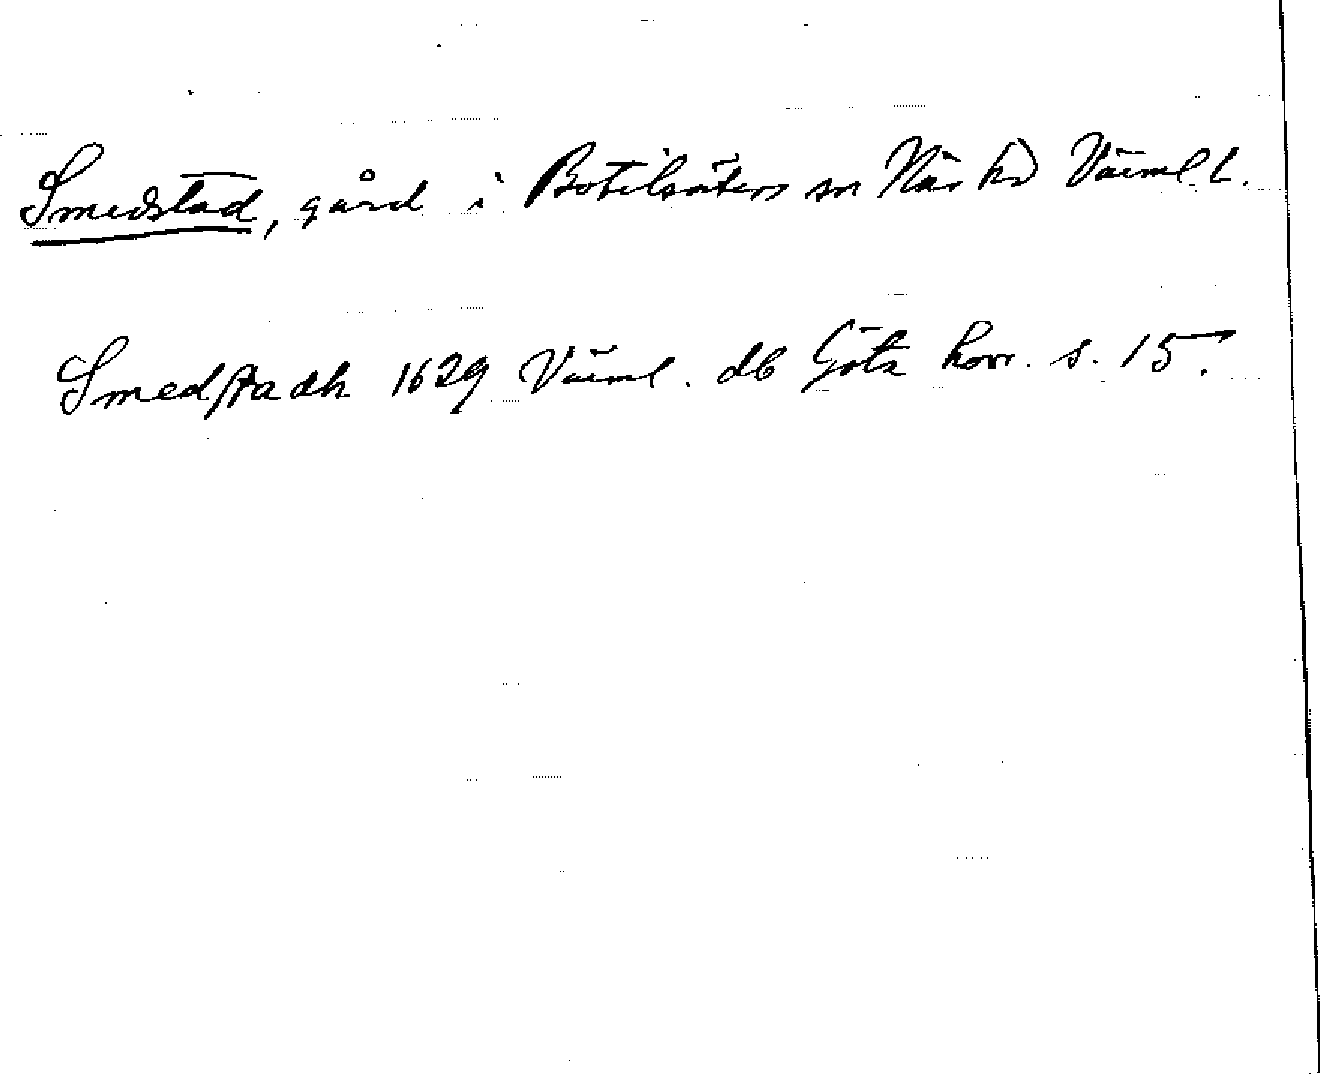 Smedstad, gård i Botilsäters sn Näs hd Värml. l.
Smedstadh 1629 Värml. db Göta hovr. s. 15.